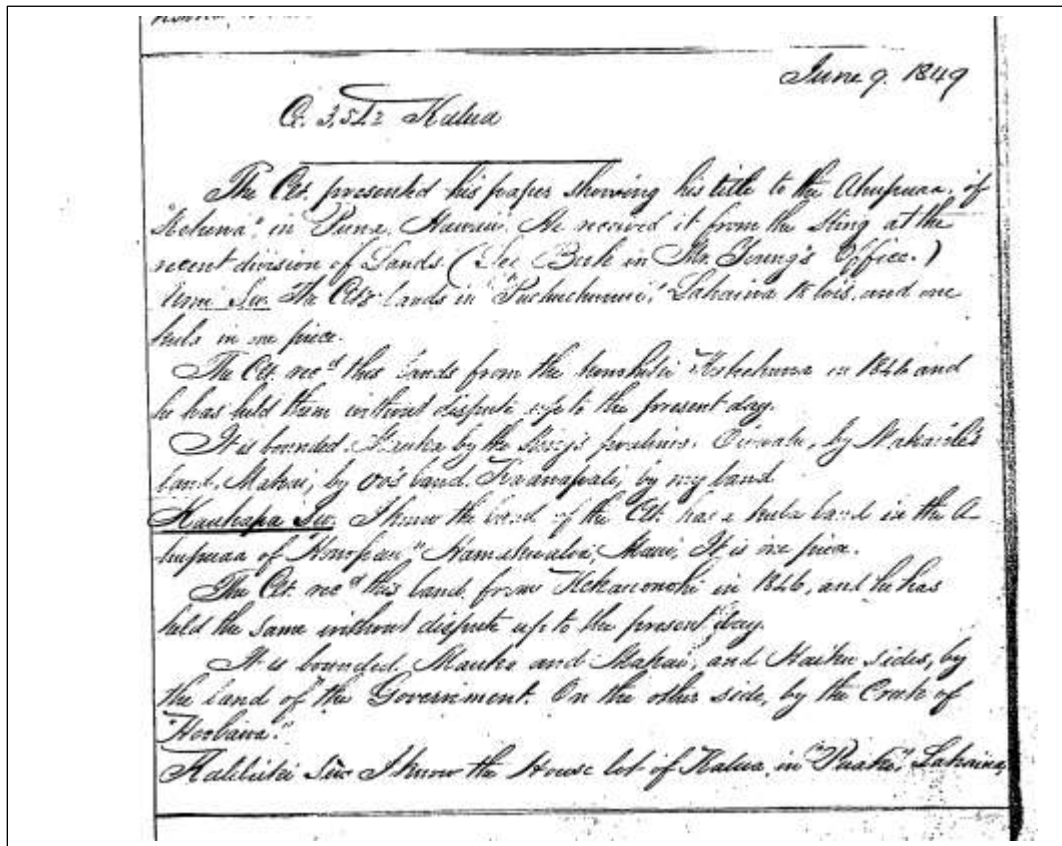 June 9. 1849
Ct. 3,512 Kalua
The Clt. presented his paper showing his title to the Ahupuaa, of
in Puna, Hawaii. He received it from the King at the
recent division of Lands. (See Book in Mr. Young's Office.)
Sw. The Clt's lands in Lahaina lois, and one
kula in one piece.
The Clt. recd this lands from the in 1846 and
he has held them without dispute up to the present day.
It is bounded. Mauka by the King's by
land. Makai, by Oo's land. Kaanapali, by my land
Kauhapa Sw. I know the land of the Clt. has a kula land in the A-
hupuaa of Maui, It is one piece.
The Clt. recd this land from Kekauonohi in 1846, and he has
held the same without dispute up to the present day.
It is bounded. Mauka and Makai, and Haiku sides, by
the land of the Government. On the other side, by the Creek of
Sw I know the House lot of Kalua, in "Puako", Lahaina,